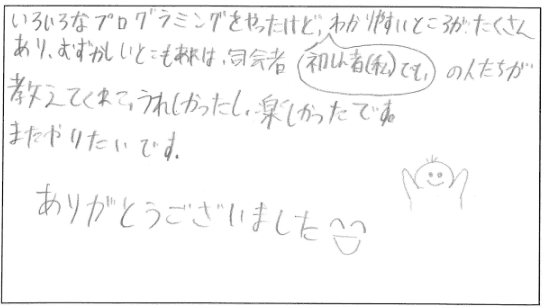 いろいろなプログラミングをやったけど、わかりやすいところが、たくさん
あり、むずかしいとこもあれば、司会者 の人たちが
初心者(私)でも、
教えてくれて、うれしかったし、楽しかったです。
またやりたいです。
ありがとうございました